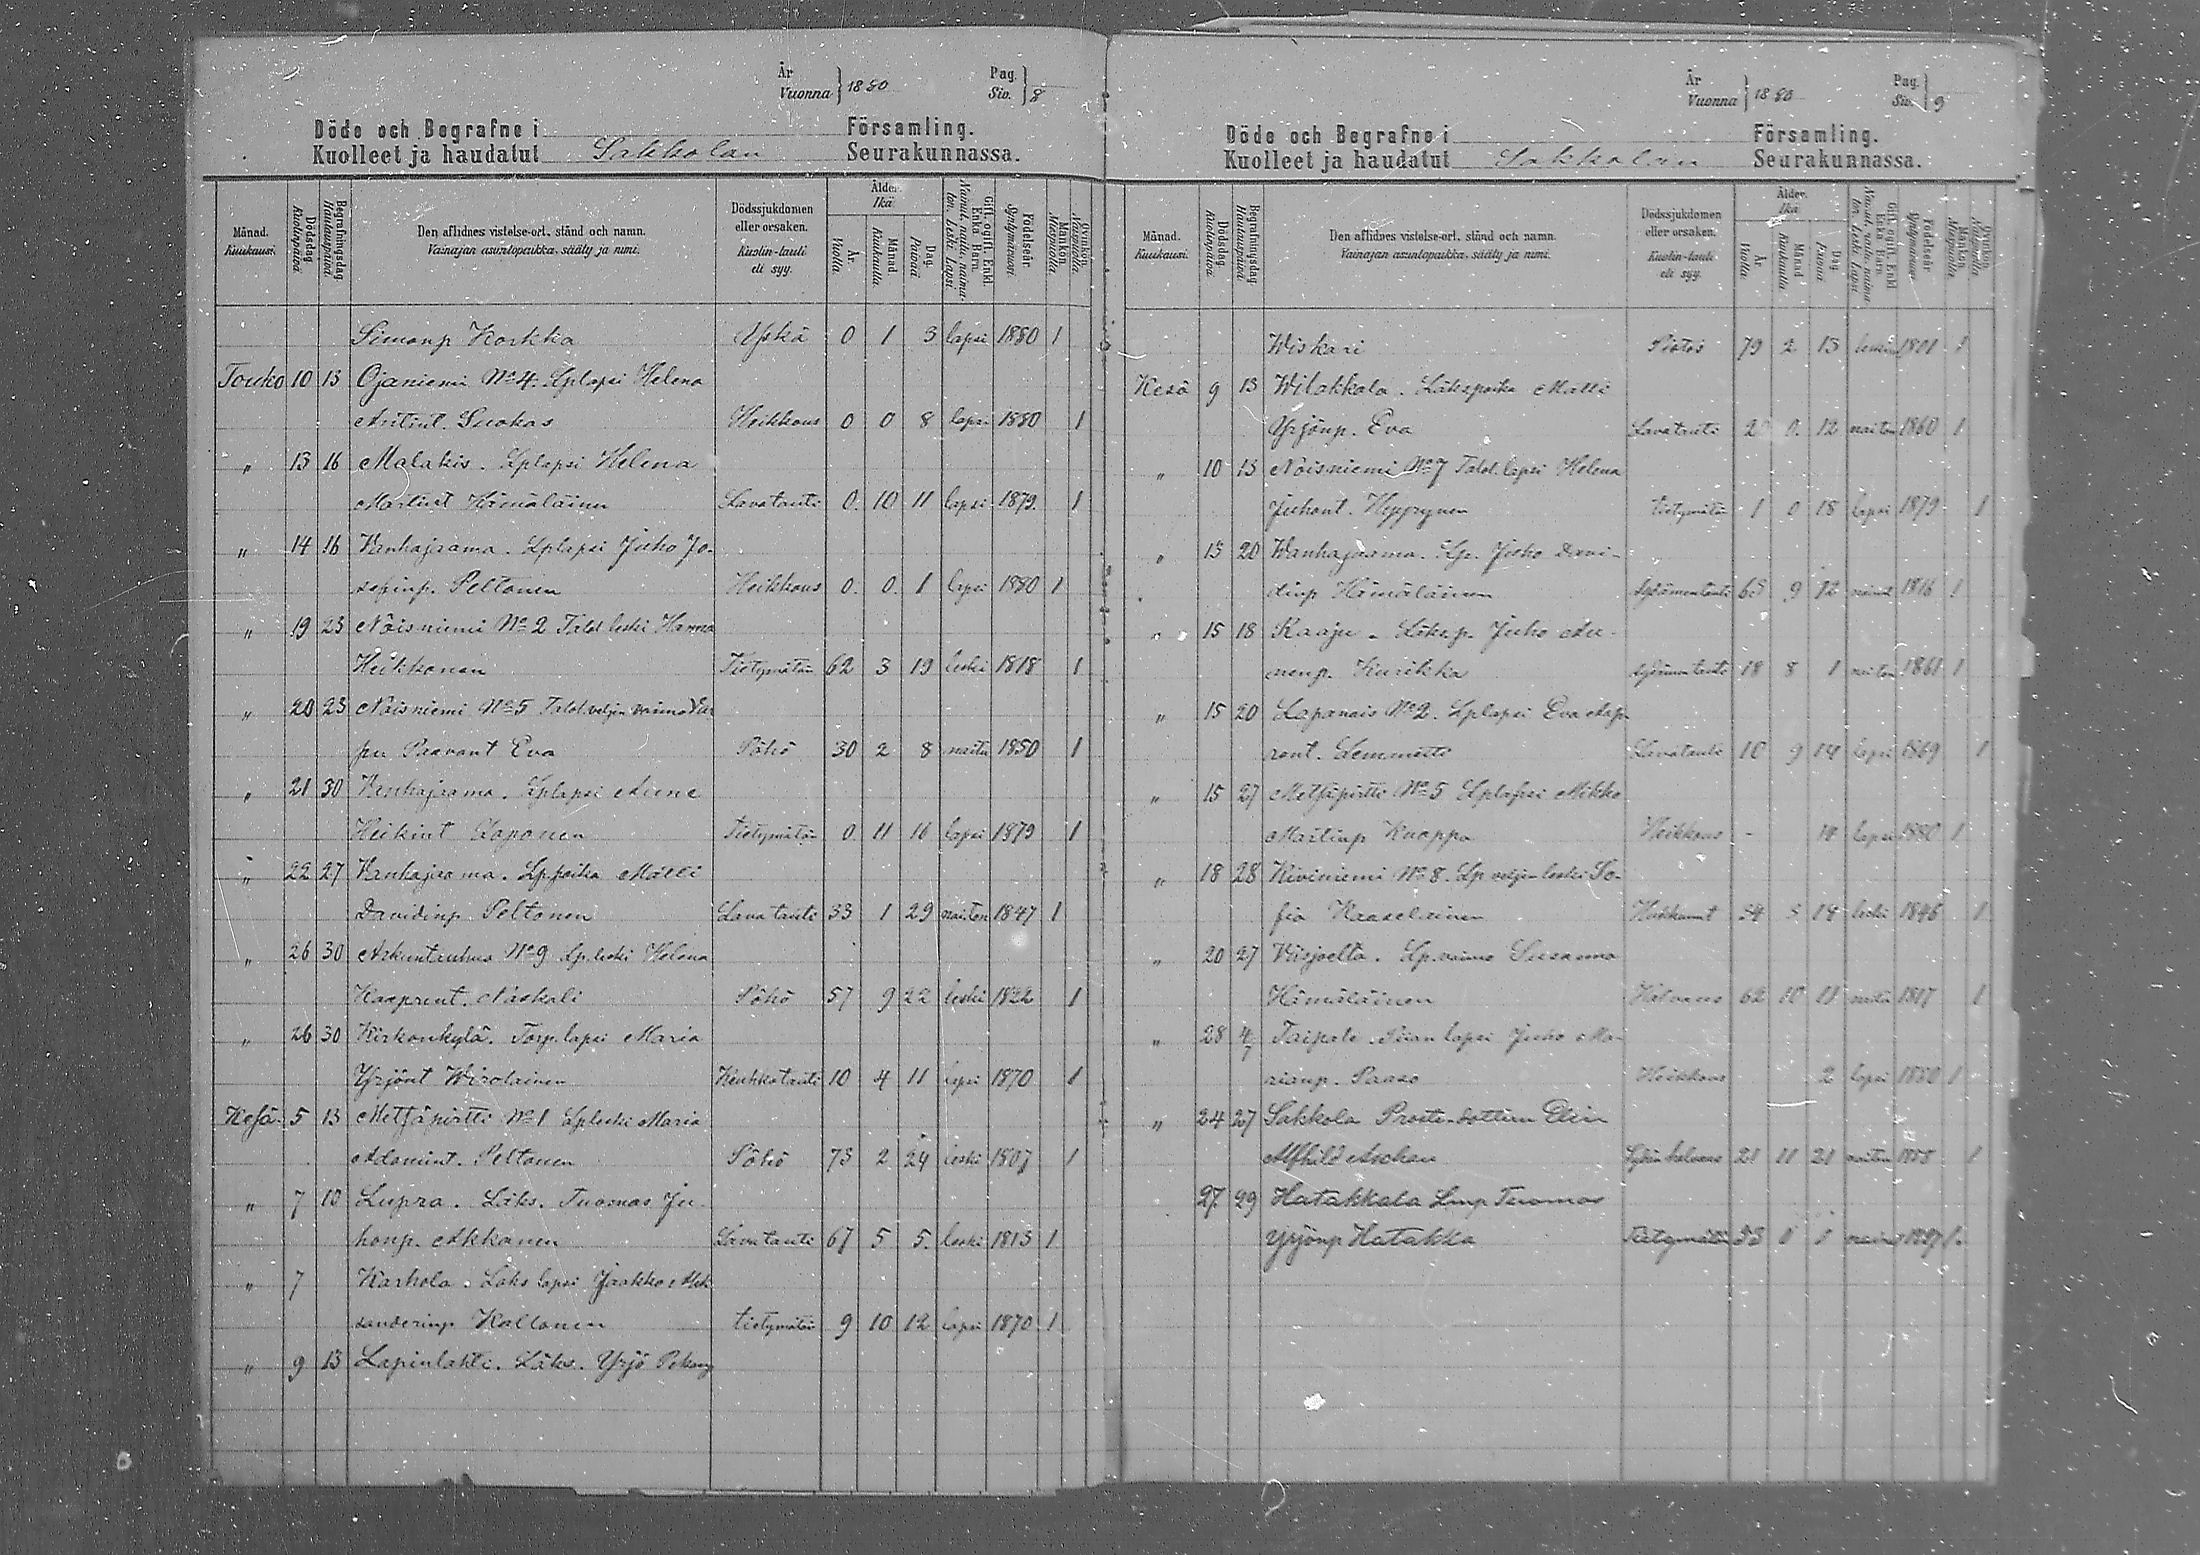 År Vuonna 1880 Pag. Siv. 8
Döde och Begrafne i Församling.
Kuolleet ja haudatut Sakkolan Seurakunnassa.
Månad. Kuukausi. Dödsdag Kuolinpäivä Begrafningsdag Hautauspäivä Den aflidnes vistelse-ort, stånd och namn. Vainajan asuntopaikka, sääty ja nimi. Dödssjukdomen eller orsaken. Kuolin-tauti eli syy. Ålder. Ikä År Vuotta Månad. Kuukautta Dag. Päivää Gift, ogift, Enkl. Enka Barn. Nainut, naitu, naimaton, Leski, Lapsi. Födelseår. Syntymävuosi. Mankön. Miespuolta Qvinkön. Vaimopuolta
Simonp Korkka Yskä 0 1 3 lapsi 1880 1
Touko 10 13 Ojaniemi No 4. Lplapsi Helena
Antint. Suokas Heikkous 0 0 8 lapsi 1880 1
" 13 16 Malakis. Lplapsi Helena
Martint Hämäläinen Lavatauti 0 10 11 lapsi 1879 1
" 14 16 Wanhajaama. Lplapsi Juho Jo-
sepinp. Peltonen Heikkous 0. 0. 1 lapsi 1880 1
" 19 23 Noisniemi No 2 Talol. leski Hanna
Heikkonen Tietymätön 62 3 19 leski 1818 1
" 20 23 Noisniemi No 5 Talol. veljen vaimo
pu Paavont Eva Pöhö 30 2 8 naitu 1850 1
" 21 30 Wanhajaama. Lplapsi Anna
Heikint Laponen Tietymätön 0. 11 16 lapsi 1879 1
" 22 27 Wanhajaama. Lp poika Matti
Davidinp Peltonen Lavatauti 33 1 29 naiton 1847 1
" 26 30 Arkuntanhua No 9 Lp. leski Helena
Kasprint. Näskali Pöhö 57 9 22 leski 1822 1
" 26 30 Kirkonkylä. Torp. lapsi Maria
Yrjönt Wirolainen Keuhkotauti 10 4 11 lapsi 1870 1
Kesä 5 13 Metsäpirtti No 1 Lpleski Maria
Adamint. Peltonen Pöhö 73 2 24 leski 1807 1
" 7 13 Lupra. Läks. Tuomas Ju-
honp. Akkanen Lavatauti 67 5 5. leski 1813 1
" 7 Karhola. Läks lapsi Jaakko Alek
sanderinp Kaltonen tietymätön 9 10 12 lapsi 1870 1
" 9 13 Lapinlahti. Läks. Yrjö Pekanp
År Vuonna 1880 Pag. Siv. 9
Döde och Begrafne i Församling.
Kuolleet ja haudatut Sakkolan Seurakunnassa.
Månad. Kuukausi. Dödsdag Kuolinpäivä Begrafningsdag Hautauspäivä Den aflidnes vistelse-ort, stånd och namn. Vainajan asuntopaikka, sääty ja nimi. Dödssjukdomen eller orsaken. Kuolin-tauti eli syy. Ålder. Ikä År Vuotta Månad. Kuukautta Dag. Päivää Gift, ogift, Enkl. Enka Barn. Nainut, naitu, naimaton, Leski, Lapsi. Födelseår. Syntymävuosi. Mankön. Miespuolta Qvinkön. Vaimopuolta
Wiskari Pistos 79 2 13 leski 1801 1
Kesä 9 13 Wilakkala. Läkspoika Matti
Yrjönp. Eva Lavatauti 0. 12 naiton 1860 1
" 10 13 Noisniemi No 7 Talol. lapsi Helena
Juhont. Hyyrynen tietymätön 1 0 18 lapsi 1879 1
" 13 20 Wanhajaama. Lp. Juho Davi-
dinp Hämäläinen sydämentauti 9 12 nainut 1816 1
" 15 18 Kaaju. Läks p. Juho
nenp. Kurikka sydämentauti 18 8 1 naiton 1861 1
" 15 20 Lapanais No 2. Lplapsi Eva
ront. Lemmetti Lavatauti 10 9 14 lapsi 1869 1
" 15 27 Metsäpirtti No 5 Lplapsi Mikko
Martinp Knaappa Heikkous - 14 lapsi 1880 1
" 18 28 Kiviniemi No 8. Lp veljen leski So-
fia Kaaselainen 34 5 14 leski 1846 1
" 20 27 Wiisjoelta. Lp. vaimo Susanna
Hämäläinen Halvaus 62 11 naitu 1817 1
" 28 4/7 Taipale. Piian lapsi Juho Ma-
rianp. Paaso Heikkous 2 lapsi 1880 1
" 24 27 Sakkola Prosten dotteren Elin
Alfhild Aschan Sydän halvaus 21 11 21 naiton 1858 1
27. 29 Hatakkala Lmp Tuomas
Yrjönp Hatakka Tietymätön 33 0 1 nainut 1847 1.